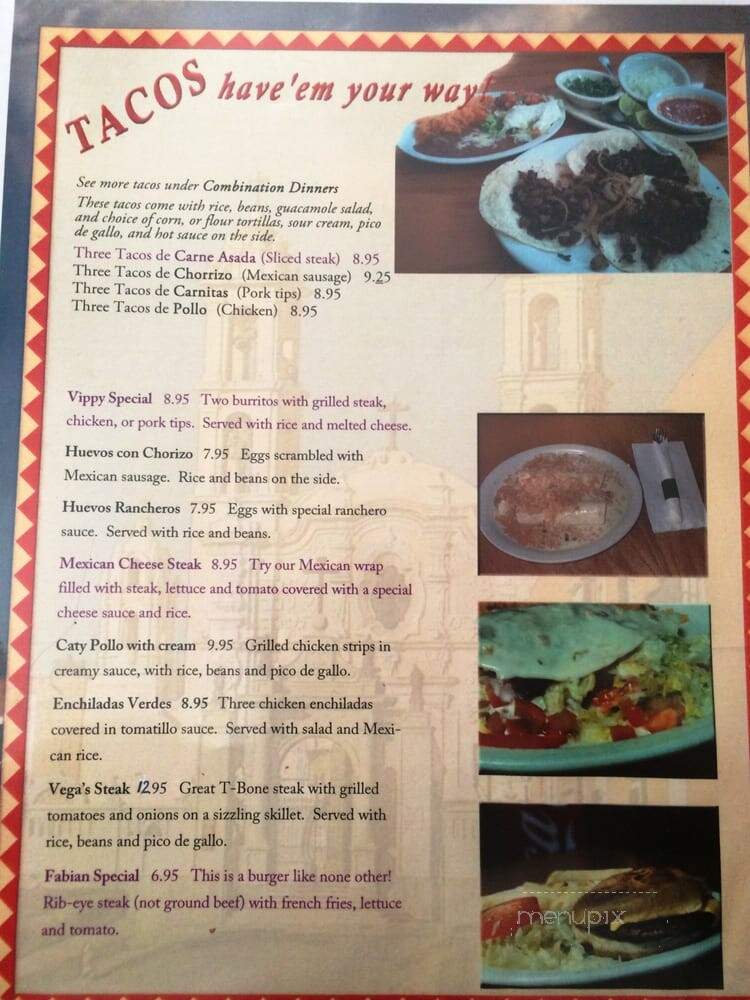 TACOS have'em your way!
See more tacos under Combination Dinners
These tacos come with rice, beans, guacamole salad,
and choice of corn, or flour tortillas, sour cream, pico
de gallo, and hot sauce on the side.
Three Tacos de Carne Asada (Sliced steak) 8.95
Three Tacos de Chorrizo (Mexican sausage) 9.25
Three Tacos de Carnitas (Pork tips) 8.95
Three Tacos de Pollo (Chicken) 8.95
Vippy Special 8.95 Two burritos with grilled steak,
chicken, or pork tips. Served with rice and melted cheese.
Huevos con Chorizo 7.95 Eggs scrambled with
Mexican sausage. Rice and beans on the side.
Huevos Rancheros 7.95 Eggs with special ranchero
sauce. Served with rice and beans.
Mexican Cheese Steak 8.95 Try our Mexican wrap
filled with steak, lettuce and tomato covered with a special
cheese sauce and rice.
Caty Pollo with cream 9.95 Grilled chicken strips in
creamy sauce, with rice, beans and pico de gallo.
Enchiladas Verdes 8.95 Three chicken enchiladas
covered in tomatillo sauce. Served with salad and Mexi-
can rice.
Vega's Steak 12.95 Great T-Bone steak with grilled
tomatoes and onions on a sizzling skillet. Served with
rice, beans and pico de gallo.
Fabian Special 6.95 This is a burger like none other!
Rib-eye steak (not ground beef) with french fries, lettuce
and tomato.
menupix